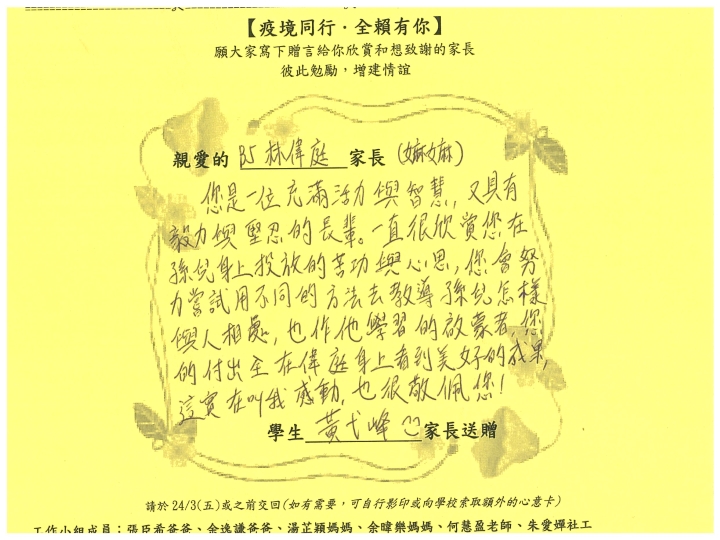 【疫境同行．全賴有你】
願大家寫下贈言給你欣賞和想致謝的家長
彼此勉勵，增建情誼
親愛的 B5 林偉庭 家長 (嫲嫲)
您是一位充滿活力與智慧，又具有
毅力與堅忍的長輩。一直很欣賞您在
孫兒身上投放的苦功與心思，您會努
力嘗試用不同的方法去教導孫兒怎樣
與人相處，也作他學習的啟蒙者，您
的付出至在偉庭身上看到美好的成果，
這實在叫我感動，也很敬佩您！
學生 黃弋峰 家長送贈
請於 24/3(五)或之前交回(如有需要，可自行影印或向學校索取額外的心意卡)
工作小組成員：張臣希爸爸、余逸謙爸爸、湯芷穎媽媽、余暐樂媽媽、何慧盈老師、朱愛嬋社工